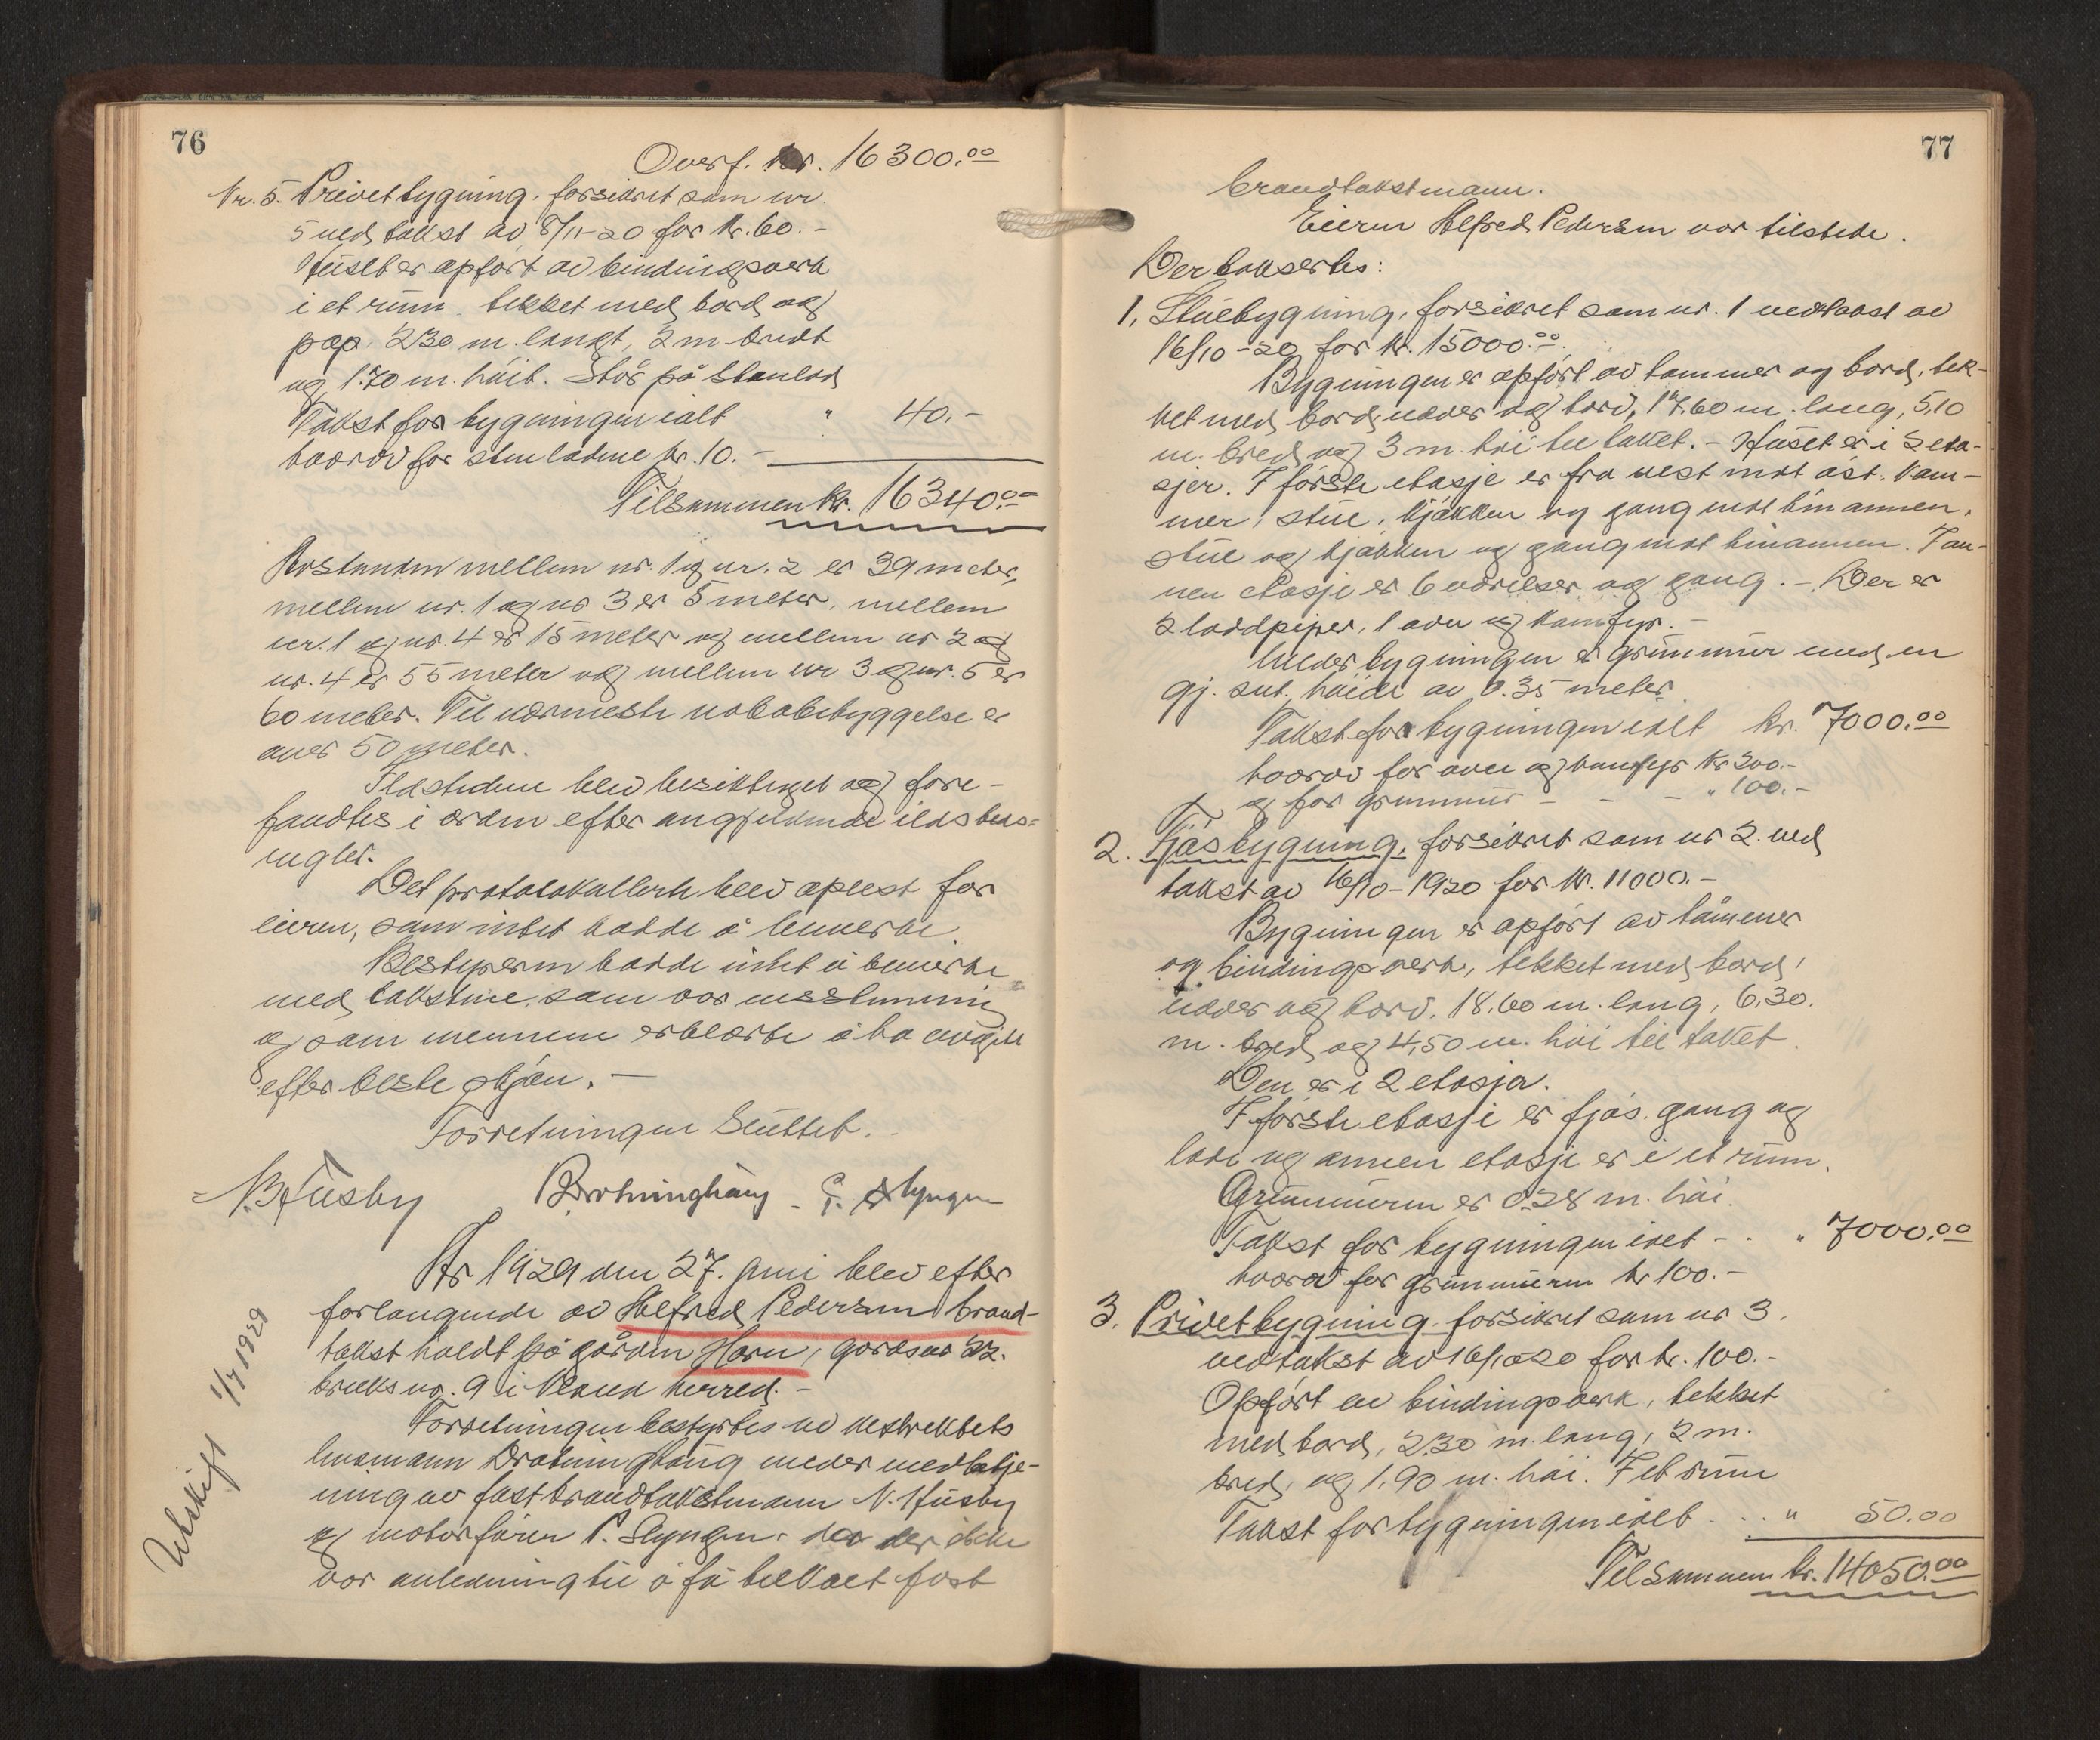 76
Overf. kr. 16300.00
Nr. 5. Privetbygning, forsikret som nr.
5 ved takst av 8/11-20 for kr. 60.-
Huset er opført av bindingsverk
i et rum, tekket med bord og
pap. 2.30 m. langt, 2 m bredt
og 1.70 m. høit. Står på stenlad
Takst for bygningen ialt " 40.-
hvorav for stenladene kr. 10.-
Tilsammen kr. 16340.00
Avstanden mellem nr. 1 og nr. 2 er 39 meter,
mellem nr. 1 og nr 3 er 5 meter, mellem
nr. 1 og nr. 4 er 15 meter og mellem nr 2 og
nr. 4 er 55 meter og mellem nr 3 og nr. 5 er
60 meter. Til nærmeste nabobebyggelse er
over 50 meter.
Ildstedene blev besiktiget og fore-
fandtes i orden efter angjeldende ildsteds-
regler.
Det protokollerte blev oplest for
eieren, som intet hadde å bemerke.
Bestyreren hadde intet å bemerke
med takstene, som var enstemmig
og som mennene erklærte å ha avgitt
efter beste skjøn. -
Forretningen sluttet.
N. Husby Drotninghaug P. Slyngen
År 1929 den 27. juni blev efter
forlangende av Alfred Pedersen brand-
takst holdt på gården Horn, gårdsnr 22.
bruks no. 9 i herred. -
Forretningen bestyrtes av distriktets
lensmann Drotninghaug under medbetje-
ning av fast brandtakstmann N. Husby
og motorfører P. Slyngen, da der ikke
var anledning til å få tilkalt fast
Utskrift 1/7 1929
77
brandtakstmann.
Eieren Alfred Pedersen var tilstede.
Der taksertes:
1. Stuebygning, forsikret som nr. 1 ved takst av
16/10-20 for kr. 15000.00.
Bygningen er opført av tømmer og bord, tek-
ket med bord, never og torv, 17.60 m. lang, 5,10
m. bred og 3 m. høi til taket. - Huset er i 2 eta-
sjer. I første etasje er fra vest mot øst: kam-
mer, stue, kjøkken og gang mot hinannen,
stue og kjøkken og gang mot hinannen. I an-
nen etasje er 6 værelser og gang. - Der er
2 loddpiper, 1 ovn og komfyr. -
Under bygningen er grunnmur med en
gj. snt. høide av 0.35 meter
Takst for bygningen ialt kr. 7000.00
hvorav for ovn og komfyr kr 200.-
og for grunnmur - - - " 100.-
2. Fjøsbygning, forsikret som nr 2. ved
takst av 16/10-1920 for kr. 11000.-
Bygningen er opført av tømmer
og bindingsverk, tekket med bord,
never og torv. 18.60 m. lang, 6,30.
m. bred og 4,50 m. høi til taket.
Den er i 2 etasjer.
I første etasje er fjøs, gang og
lade og annen etasje er i et rum.
Grunnmuren er 0.28 m. høi.
Takst for bygningen ialt - . " 7000.00
hvorav for grunnmuren kr 100.-
3. Privetbygning, forsikret som nr 3.
ved takst av 16/10-20 for kr. 100.-
Opført av bindingsverk, tekket
med bord, 2.30 m. lang, 2 m.
bred, og 1.90 m. høi. I et rum
Takst for bygningen ialt . . . " 50.00
Tilsammen kr. 14050.00